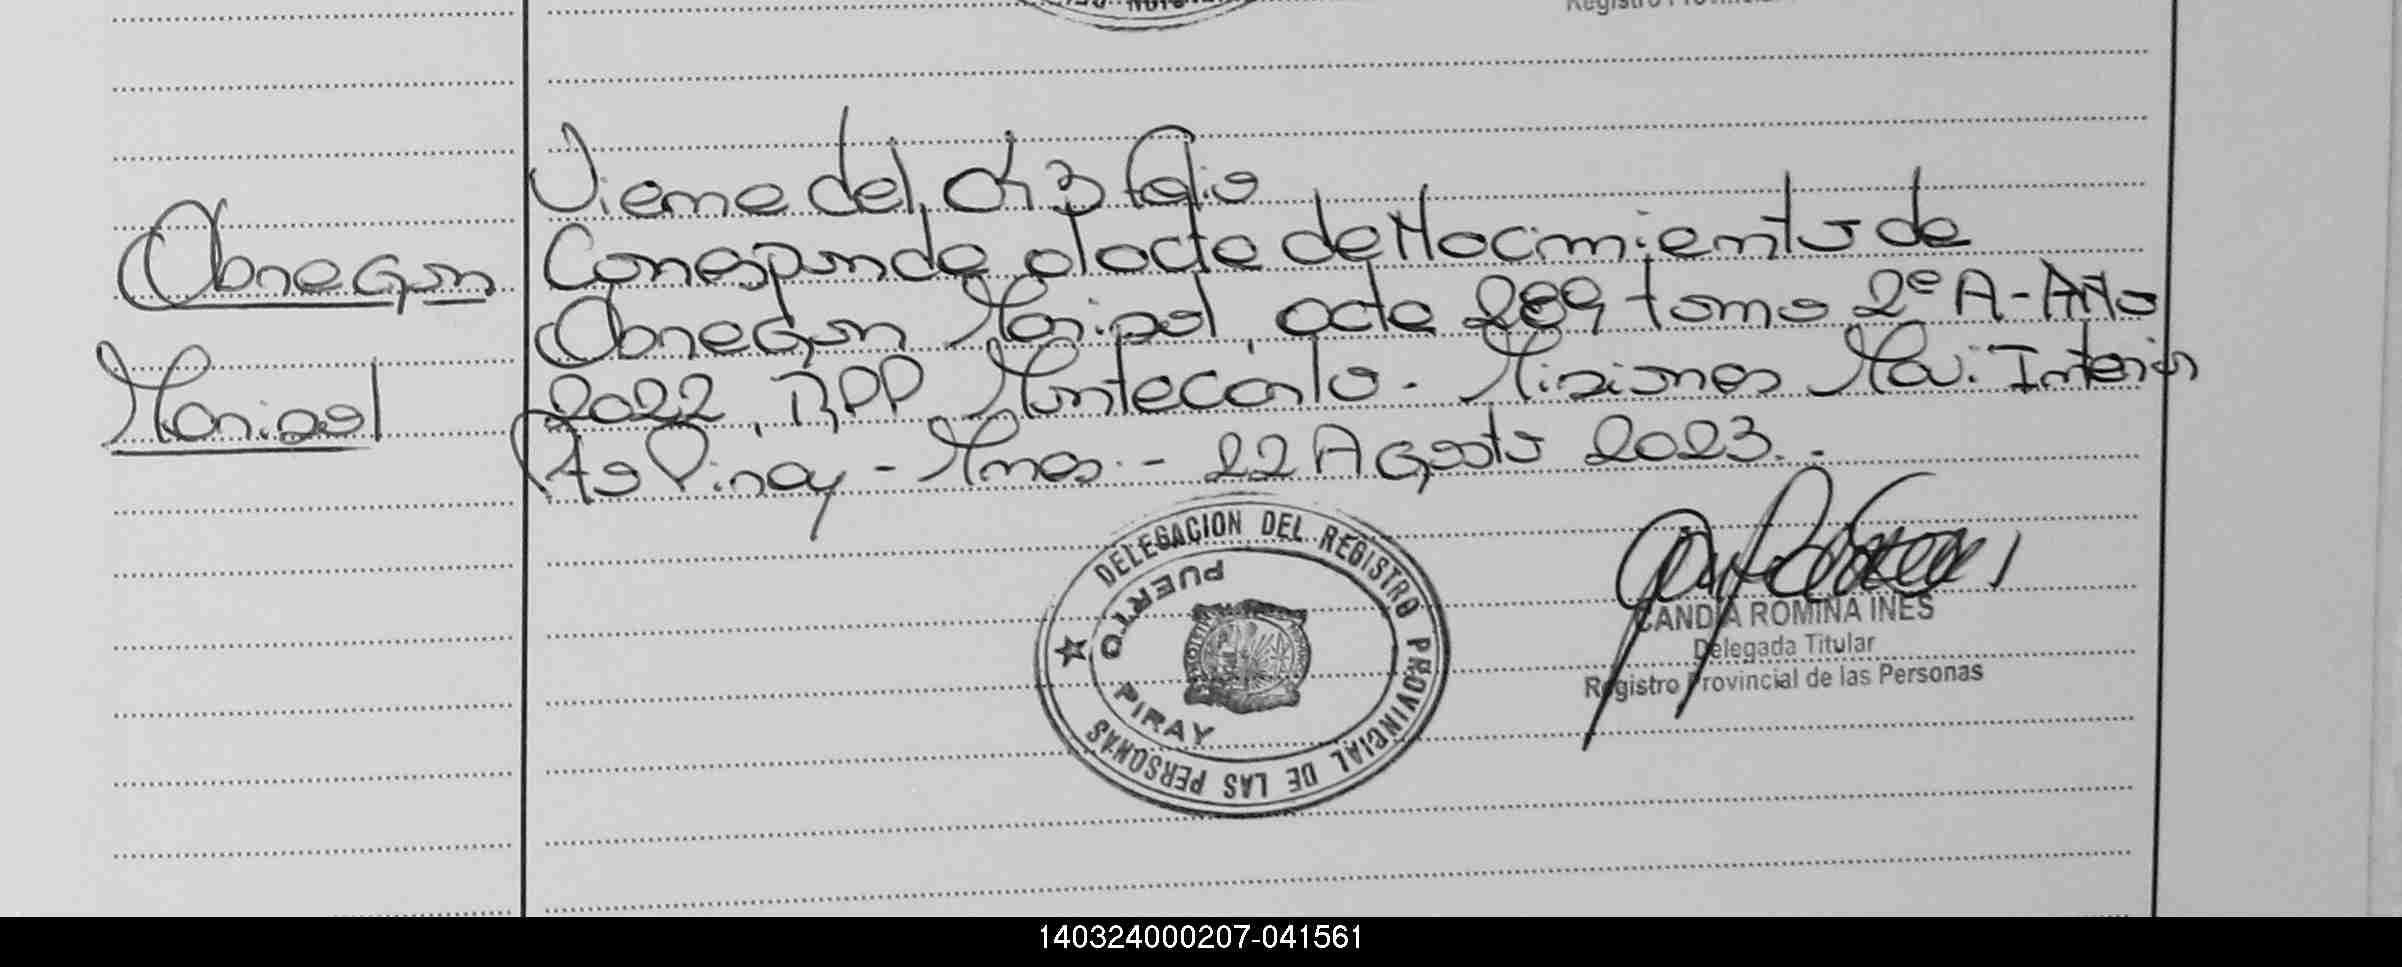 Obregon
Marisol
Viene del CH 3 folio
Corresponde al acta de Nacimiento de
Obregon Marisol, acta 289 tomo 2º A - Año
2022, RPP Montecarlo - Misiones Mov. Interior
Pto Piray - Mnes. - 22 Agosto 2023.-
DELEGACION DEL REGISTRO PROVINCIAL DE LAS PERSONAS
PUERTO PIRAY
CANDIA ROMINA INES
Delegada Titular
Registro Provincial de las Personas
140324000207-041561